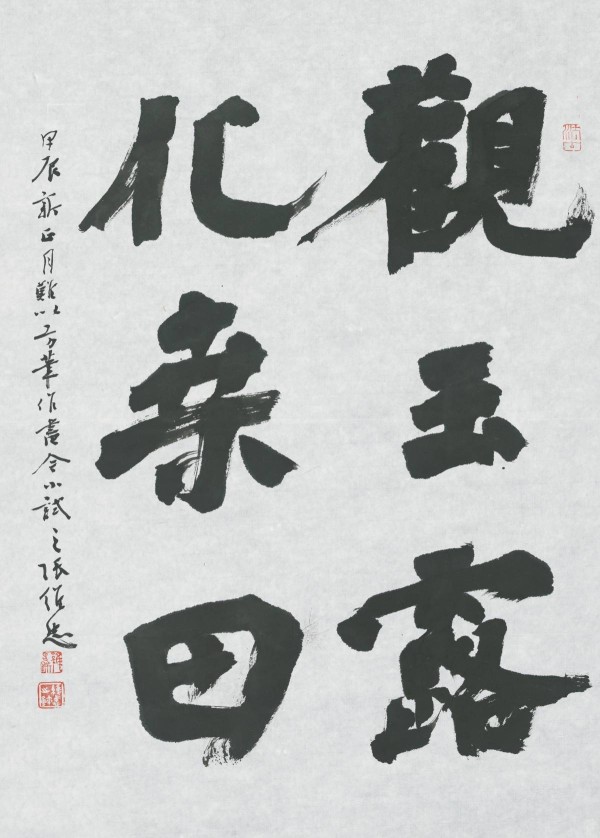 觀玉露
化桑田
甲辰新正月難以方筆作書今小試之張